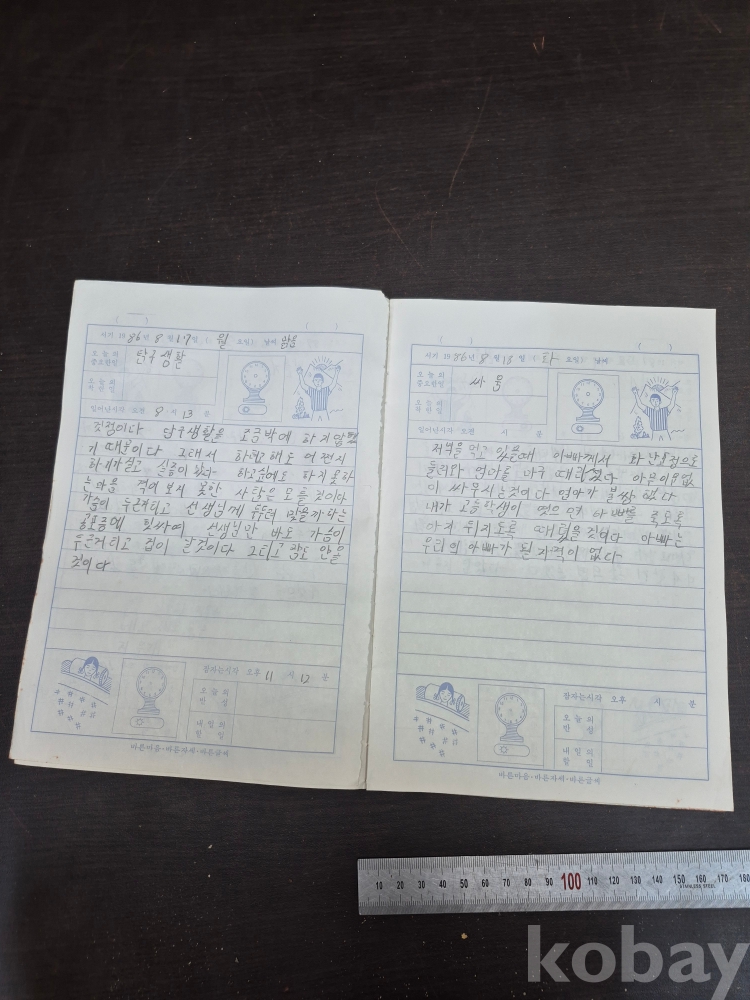 서기 1986년 8월 17일 (월요일) 날씨 맑음
오늘의 중요한일
탐구생활
오늘의 착한일
일어난시각 오전 8 시 13 분
걱정이다 탐구생활을 조금밖에 하지않았
기 때문이다 그래서 하려고해도 어쩐지
하기가싫고 싫증이났다 하고싶어도 하지못하
는마음 적어보지 못한 사람은 모를것이다
가슴이 두근거리고 선생님께 뚜두려 맞을까라는
에 휩싸여 선생님만 봐도 가슴이
두근거리고 겁이 날것이다 그리고 잠도 안올
것이다
잠자는시각 오후 11 시 12 분
오늘의 반성
내일의 할일
바른마음·바른자세·바른글씨
서기 1986년 8월 13일 (화요일) 날씨
오늘의 중요한일
싸움
오늘의 착한일
일어난시각 오전 시 분
저녁을 먹고 있을때 아빠께서 화난표정으로
들려와 엄마를 마구 때리셨다 아무이유없
이 싸우시는것이다 엄마가 불쌍했다
내가 고등학생이 였으면 아빠를 죽도록
아지 뒤지도록 때렸을것이다 아빠는
우리의 아빠가 될자격이 없다
잠자는시각 오후 시 분
오늘의 반성
내일의 할일
바른마음·바른자세·바른글씨
10 20 30 40 50 60 70 80 90 100 110 120 130 140 150 160 170 180
STAINLESS STEEL
kobay